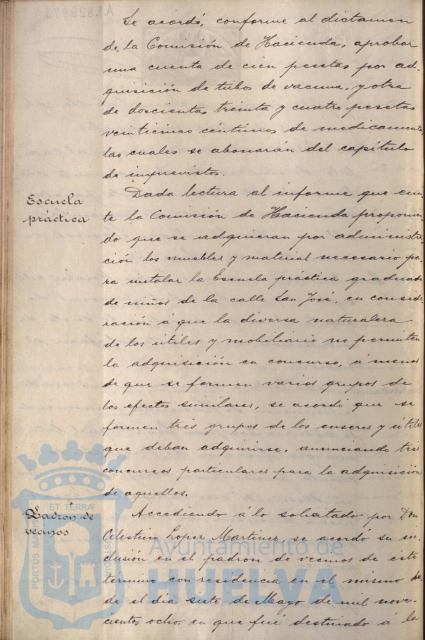 Se acordó, conforme al dictamen
de la Comisión de Hacienda, aprobar
una cuenta de cien pesetas por ad-
quisición de tubos de vacuna, y otra
de doscientas treinta y cuatro pesetas
veinticinco céntimos de medicamentos
las cuales se abonarán del capítulo
de imprevistos.
Escuela
práctica
Dada lectura al informe que emi-
te la Comisión de Hacienda proponien-
do que se adquieran por administra-
ción los muebles y material necesario pa-
ra instalar la Escuela práctica graduada
de niños de la calle San José, en conside-
ración á que la diversa naturaleza
de los útiles y mobiliario no permiten
la adquisición en concurso, á menos
de que se formen varios grupos de
los efectos similares, se acordó que se
formen tres grupos de los enseres y útiles
que deban adquirirse, anunciando tres
concursos particulares para la adquisición
de aquellos.
Padrón de
vecinos
Accediendo á lo solicitado por Don
Celestino Lopez Martinez se acordó su in-
clusión en el padrón de vecinos de este
termino con residencia en el mismo des-
de el día siete de Mayo de mil nove-
cientos ocho en que fué destinado a la
PORTUS MARIS ET TERRAE
Ayuntamiento de
HUELVA